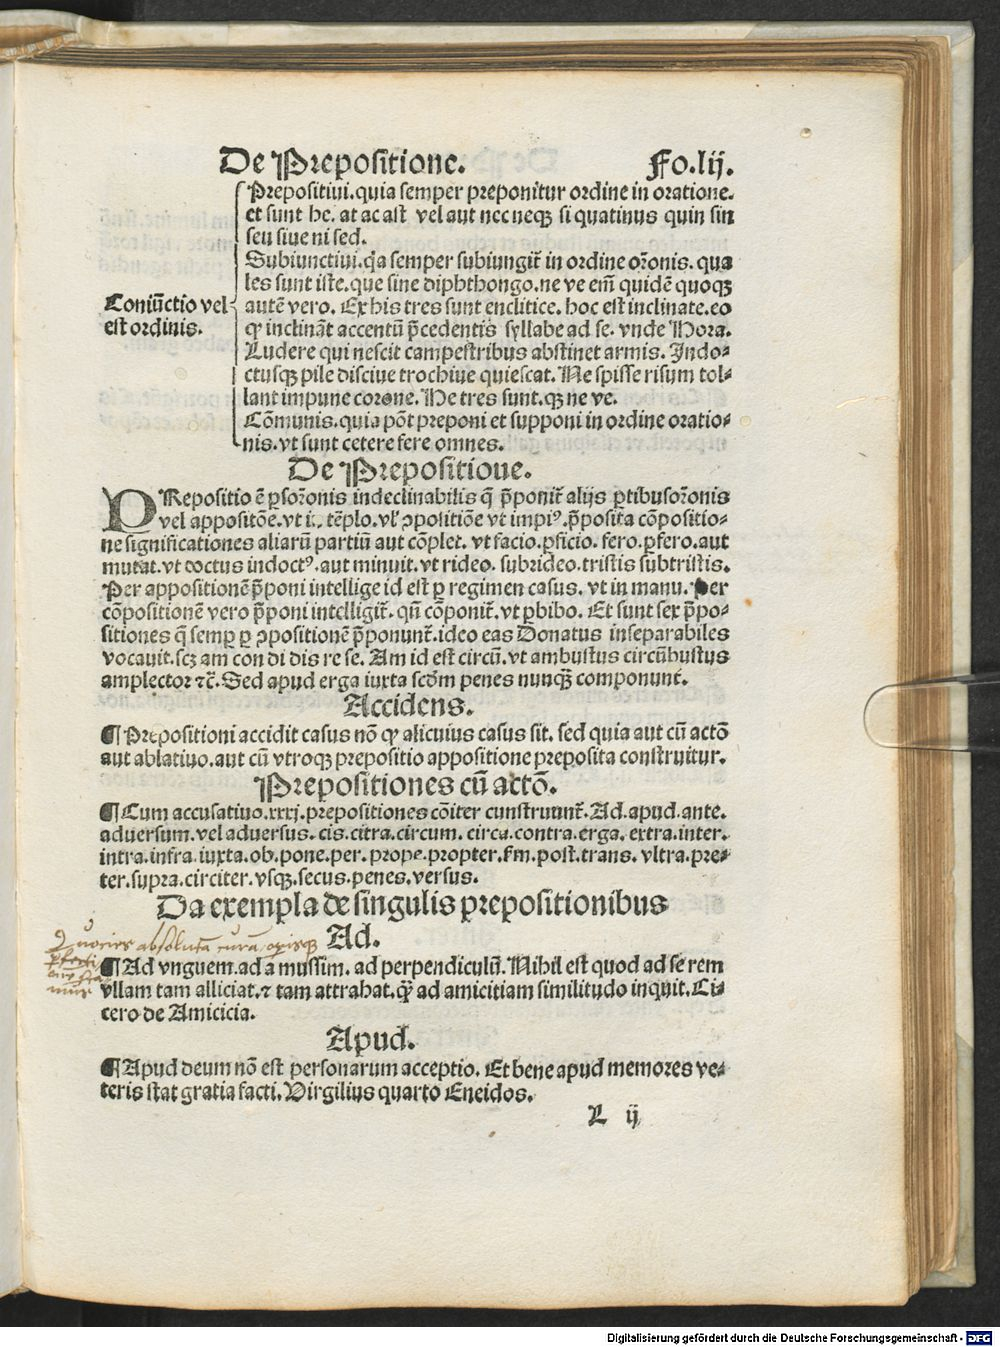 De Prepositione. Fo.lij.
Prepositiui.quia semper preponitur ordine in oratione.
et sunt hc. at ac ast vel aut nec neqꝫ si quatinus quin sin
seu siue ni sed.
Subiunctiui.q̃a semper subiungit̃ in ordine or̃onis. qua
les sunt iste.que sine diphthongo.ne ve em̃ quidẽ quoqꝫ
Coniũctio vel
est ordinis.
autẽ vero. Ex his tres sunt enclitice. hoc est inclinate.eo
ꝙ inclinãt accentũ p̃cedentis syllabe ad se. vnde Hora.
Ludere qui nescit campestribus abstinet armis. Indo-
ctusqꝫ pile disciue trochiue quiescat. Ne spisse risum tol-
lant impune corone. He tres sunt.qꝫ ne ve.
Cõmunis.quia põt preponi et supponi in ordine oratio-
nis.vt sunt cetere fere omnes.
De Prepositioue.
PRepositio ẽ ꝑsor̃onis indeclinabilis q̃ p̃ponit̃ alijs ꝑtibusor̃onis
vel appositõe.vt in tẽplo. vl' ꝯpositiõe vt impiꝰ.p̃posita cõpositio-
ne significationes aliarũ partiũ aut cõplet. vt facio.ꝑficio. fero.ꝑfero.aut
mutat.vt doctus indoctꝰ.aut minuit.vt rideo. subrideo.tristis subtristis.
Per appositionẽ p̃poni intellige id est ꝑ regimen casus. vt in manu. Per
cõpositionẽ vero p̃poni intelligit̃. qñ cõponit̃. vt ꝑbibo. Et sunt sex p̃po-
sitiones q̃ semꝑ ꝑ ꝯpositionẽ p̃ponunt̃.ideo eas Donatus inseparabiles
vocauit.scꝫ am con di dis re se. Am id est circũ. vt ambustus circũbustus
amplector ⁊c̃. Sed apud erga iuxta scðm penes nunqꝫ̃ componunt̃.
Accidens.
¶ Prepositioni accidit casus nõ ꝙ alicuius casus sit. sed quia aut cũ actõ
aut ablatiuo.aut cũ vtroqꝫ prepositio appositione preposita construitur.
Prepositiones cũ actõ.
¶ Cum accusatiuo.xxxj.prepositiones cõiter cunstruunt̃. Ad.apud.ante.
aduersum.vel aduersus.cis.citra.circum.circa.contra.erga.extra.inter.
intra.infra.iuxta.ob.pone.per.prope.propter.ẜm.post.trans.vltra.pre-
ter.supra.circiter.vsqꝫ.secus.penes.versus.
Da exempla de singulis prepositionibus
Ad.
Quocies absolutã curã
¶ Ad vnguem.ad a mussim. ad perpendiculũ. Nihil est quod ad se rem
vllam tam alliciat.⁊ tam attrahat.qꝫ̃ ad amicitiam similitudo inquit.Ci-
cero de Amicicia.
Apud.
¶ Apud deum nõ est personarum acceptio. Et bene apud memores ve-
teris stat gratia facti.Virgilius quarto Eneidos.
L ij
Digitalisierung gefördert durch die Deutsche Forschungsgemeinschaft - DFG